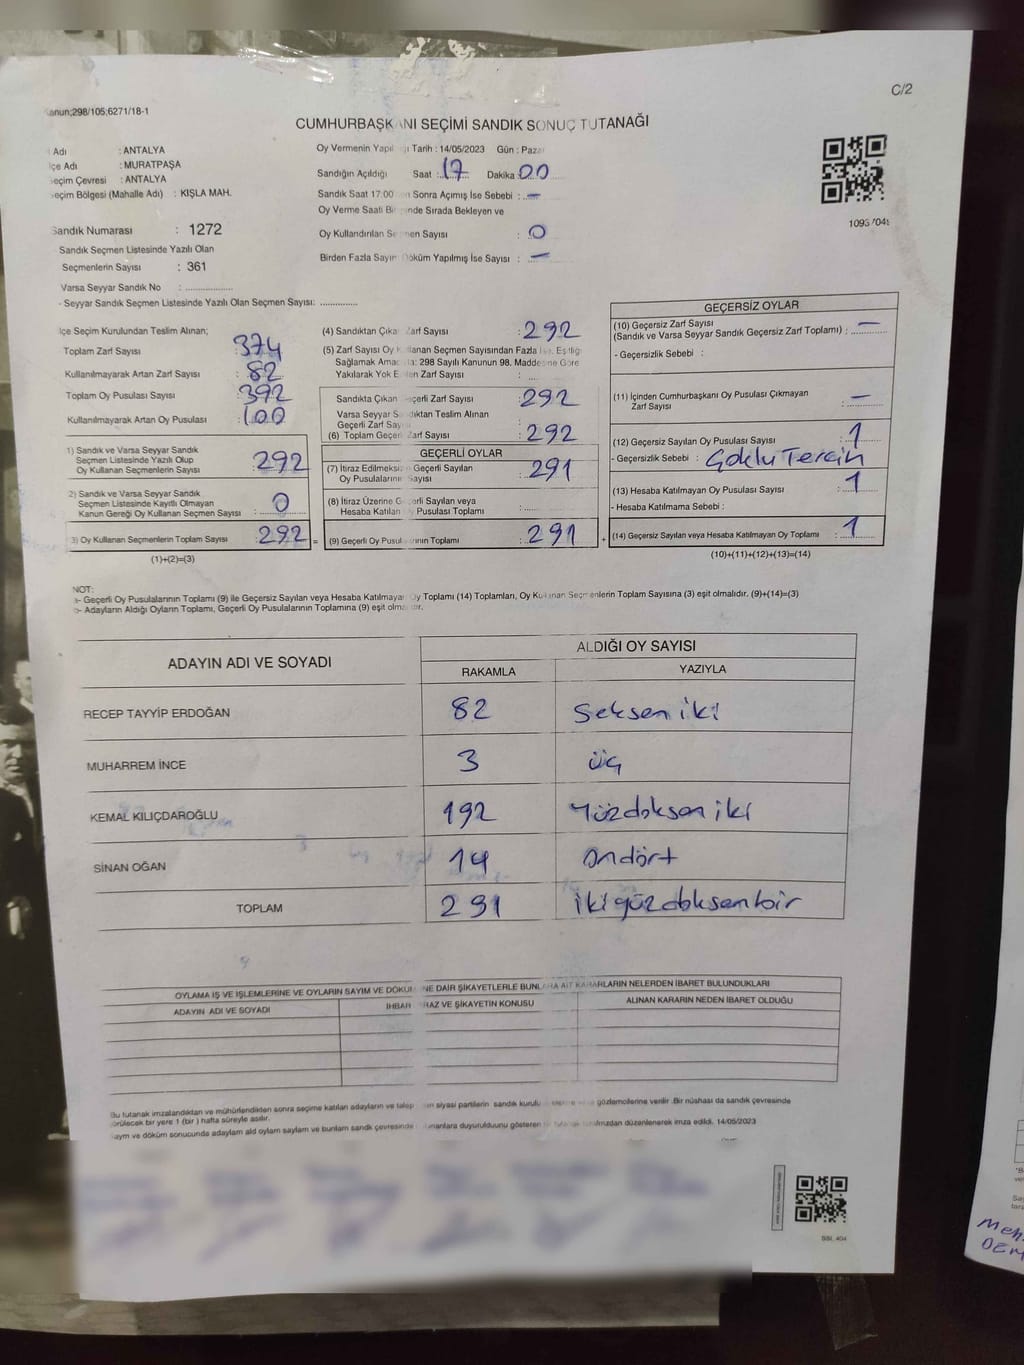 C/2
anun;298/105;6271/18-1
CUMHURBAŞKANI SEÇİMİ SANDIK SONUÇ TUTANAĞI
Adı : ANTALYA
lçe Adı : MURATPAŞA
eçim Çevresi : ANTALYA
eçim Bölgesi (Mahalle Adı) : KIŞLA MAH.
Sandık Numarası : 1272
Sandık Seçmen Listesinde Yazılı Olan
Seçmenlerin Sayısı : 361
Varsa Seyyar Sandık No : ..............
- Seyyar Sandık Seçmen Listesinde Yazılı Olan Seçmen Sayısı: ............
Oy Vermenin Yapıl ğı Tarih : 14/05/2023 Gün : Pazar
Sandığın Açıldığı Saat : 17 Dakika : 00
Sandık Saat 17:00 en Sonra Açımış İse Sebebi : —
Oy Verme Saati Bi inde Sırada Bekleyen ve
Oy Kullandırılan Se men Sayısı : 0
Birden Fazla Sayım Döküm Yapılmış İse Sayısı : —
İlçe Seçim Kurulundan Teslim Alınan;
Toplam Zarf Sayısı : 374
Kullanılmayarak Artan Zarf Sayısı : 82
Toplam Oy Pusulası Sayısı : 392
Kullanılmayarak Artan Oy Pusulası : 100
1) Sandık ve Varsa Seyyar Sandık
Seçmen Listesinde Yazılı Olup
Oy Kullanan Seçmenlerin Sayısı : 292
2) Sandık ve Varsa Seyyar Sandık
Seçmen Listesinde Kayıtlı Olmayan
Kanun Gereği Oy Kullanan Seçmen Sayısı : 0
3) Oy Kullanan Seçmenlerin Toplam Sayısı : 292 =
(1)+(2)=(3)
(4) Sandıktan Çıka Zarf Sayısı : 292
(5) Zarf Sayısı Oy K llanan Seçmen Sayısından Fazla İse, Eşitliği
Sağlamak Ama la: 298 Sayılı Kanunun 98. Maddesine Göre
Yakılarak Yok E en Zarf Sayısı : ....
Sandıkta Çıkan eçerli Zarf Sayısı : 292
Varsa Seyyar S dıktan Teslim Alınan
Geçerli Zarf Say
(6) Toplam Geçer Zarf Sayısı : 292
GEÇERLİ OYLAR
(7) İtiraz Edilmeksiz n Geçerli Sayılan
Oy Pusulalarını Sayısı : 291
(8) İtiraz Üzerine G erli Sayılan veya
Hesaba Katılan y Pusulası Toplamı : ........
(9) Geçerli Oy Pusul rının Toplamı : 291 +
GEÇERSİZ OYLAR
(10) Geçersiz Zarf Sayısı
(Sandık ve Varsa Seyyar Sandık Geçersiz Zarf Toplamı) : —
- Geçersizlik Sebebi :
(11) İçinden Cumhurbaşkanı Oy Pusulası Çıkmayan
Zarf Sayısı : —
(12) Geçersiz Sayılan Oy Pusulası Sayısı : 1
- Geçersizlik Sebebi : Çoklu Tercih
(13) Hesaba Katılmayan Oy Pusulası Sayısı : 1
- Hesaba Katılmama Sebebi :
(14) Geçersiz Sayılan veya Hesaba Katılmayan Oy Toplamı : 1
(10)+(11)+(12)+(13)=(14)
NOT:
a- Geçerli Oy Pusulalarının Toplamı (9) ile Geçersiz Sayılan veya Hesaba Katılmayan Oy Toplamı (14) Toplamları, Oy Kullanan Seçmenlerin Toplam Sayısına (3) eşit olmalıdır. (9)+(14)=(3)
b- Adayların Aldığı Oyların Toplamı, Geçerli Oy Pusulalarının Toplamına (9) eşit olmalıdır.
ADAYIN ADI VE SOYADI ALDIĞI OY SAYISI
RAKAMLA YAZIYLA
RECEP TAYYİP ERDOĞAN 82 Seksen iki
MUHARREM İNCE 3 üç
KEMAL KILIÇDAROĞLU 192 Yüzdoksan iki
SİNAN OĞAN 14 Ondört
TOPLAM 291 ikiyüzdoksanbir
OYLAMA İŞ VE İŞLEMLERİNE VE OYLARIN SAYIM VE DÖKÜM NE DAİR ŞİKAYETLERLE BUNLARA AİT KARARLARIN NELERDEN İBARET BULUNDUKLARI
ADAYIN ADI VE SOYADI İHBAR RAZ VE ŞİKAYETİN KONUSU ALINAN KARARIN NEDEN İBARET OLDUĞU
Bu tutanak imzalandıktan ve mühürlendikten sonra seçime katılan adayların ve talep en siyasi partilerin sandık kurulu gözlemcilerine verilir. Bir nüshası da sandık çevresinde
örülecek bir yere 1 (bir) hafta süreyle asılır.
ayım ve döküm sonucunda adayların aldı oyların sayları ve bunların sandık çevresinde duyurulduunu gösteren düzenlenerek imza edildi. 14/05/2023